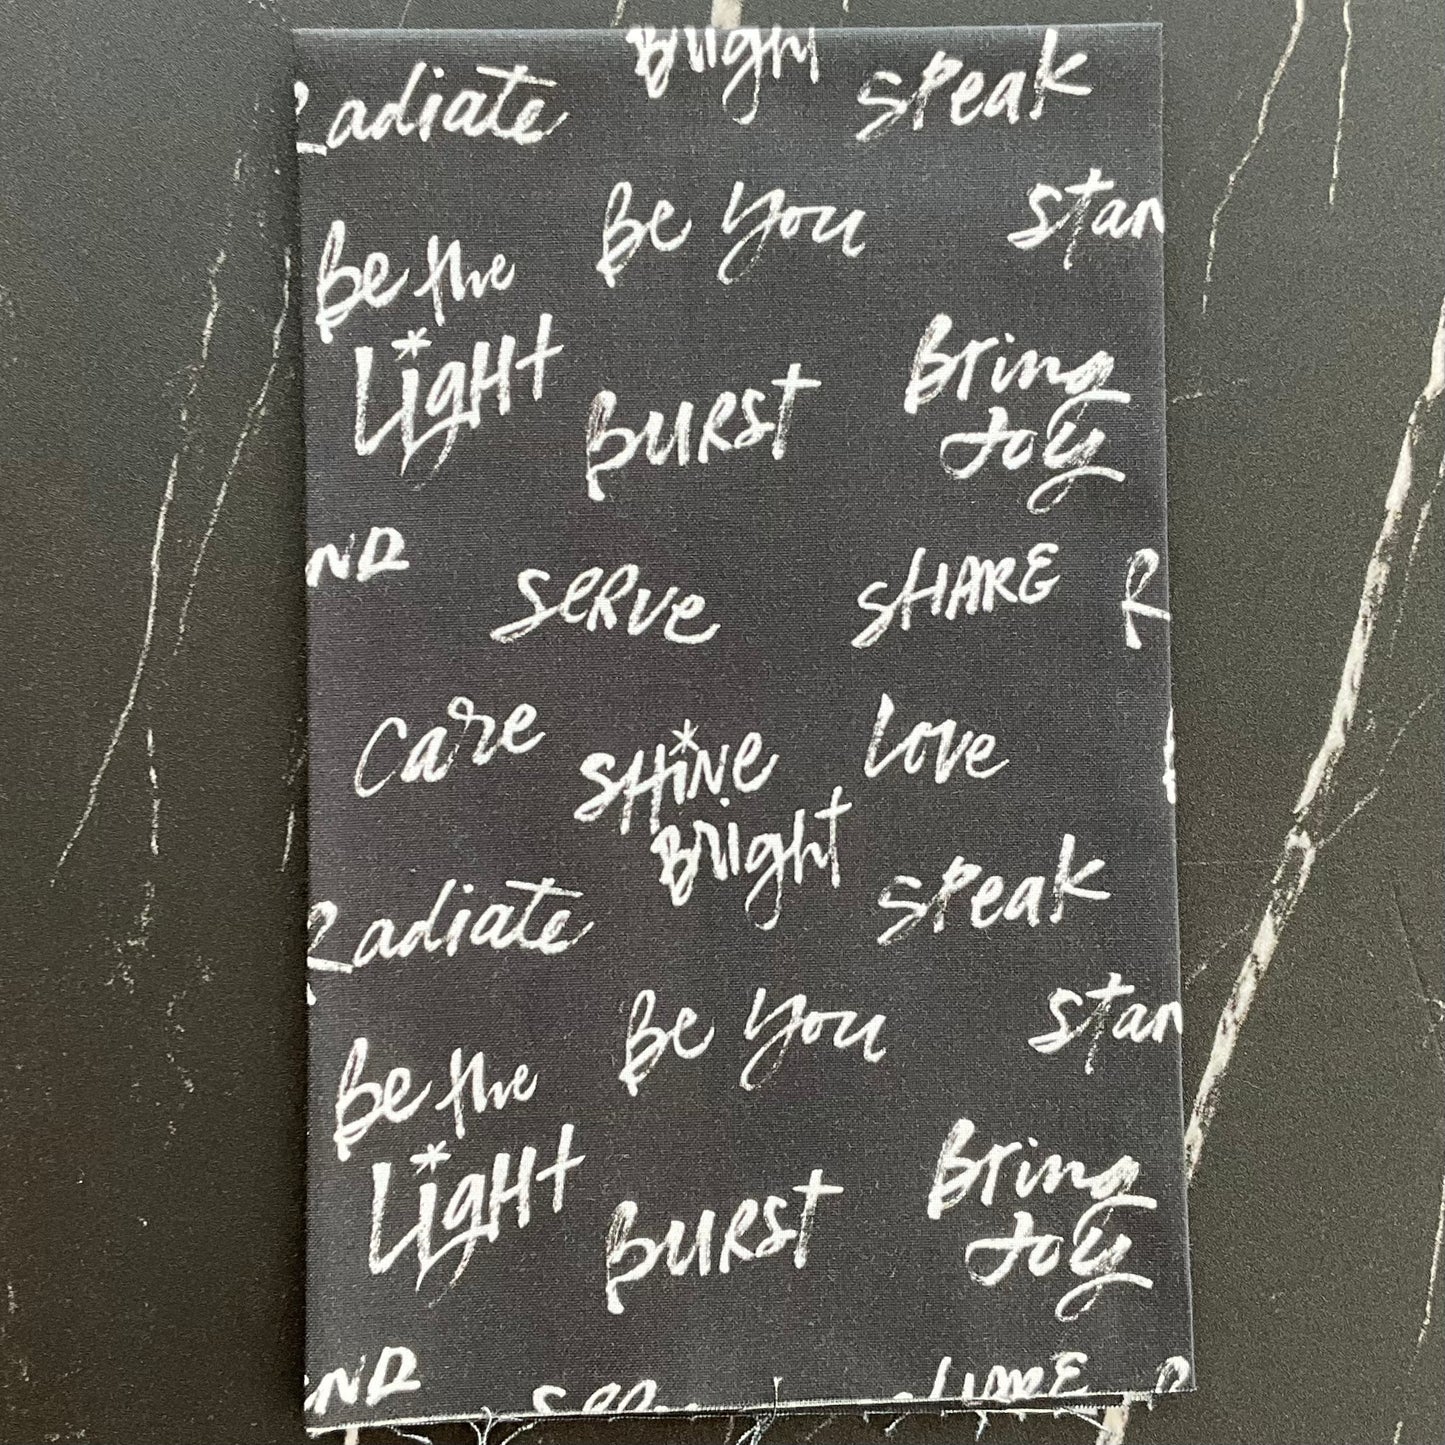 Bright
Radiate
speak
Be You
stan
Be the
Light
BURST
Bring
Joy
ND
SERVE
SHARE
R
Care
SHiNe
Bright
Love
Radiate
speak
Be You
stan
Be the
Light
BURST
Bring
Joy
ND
SHARE